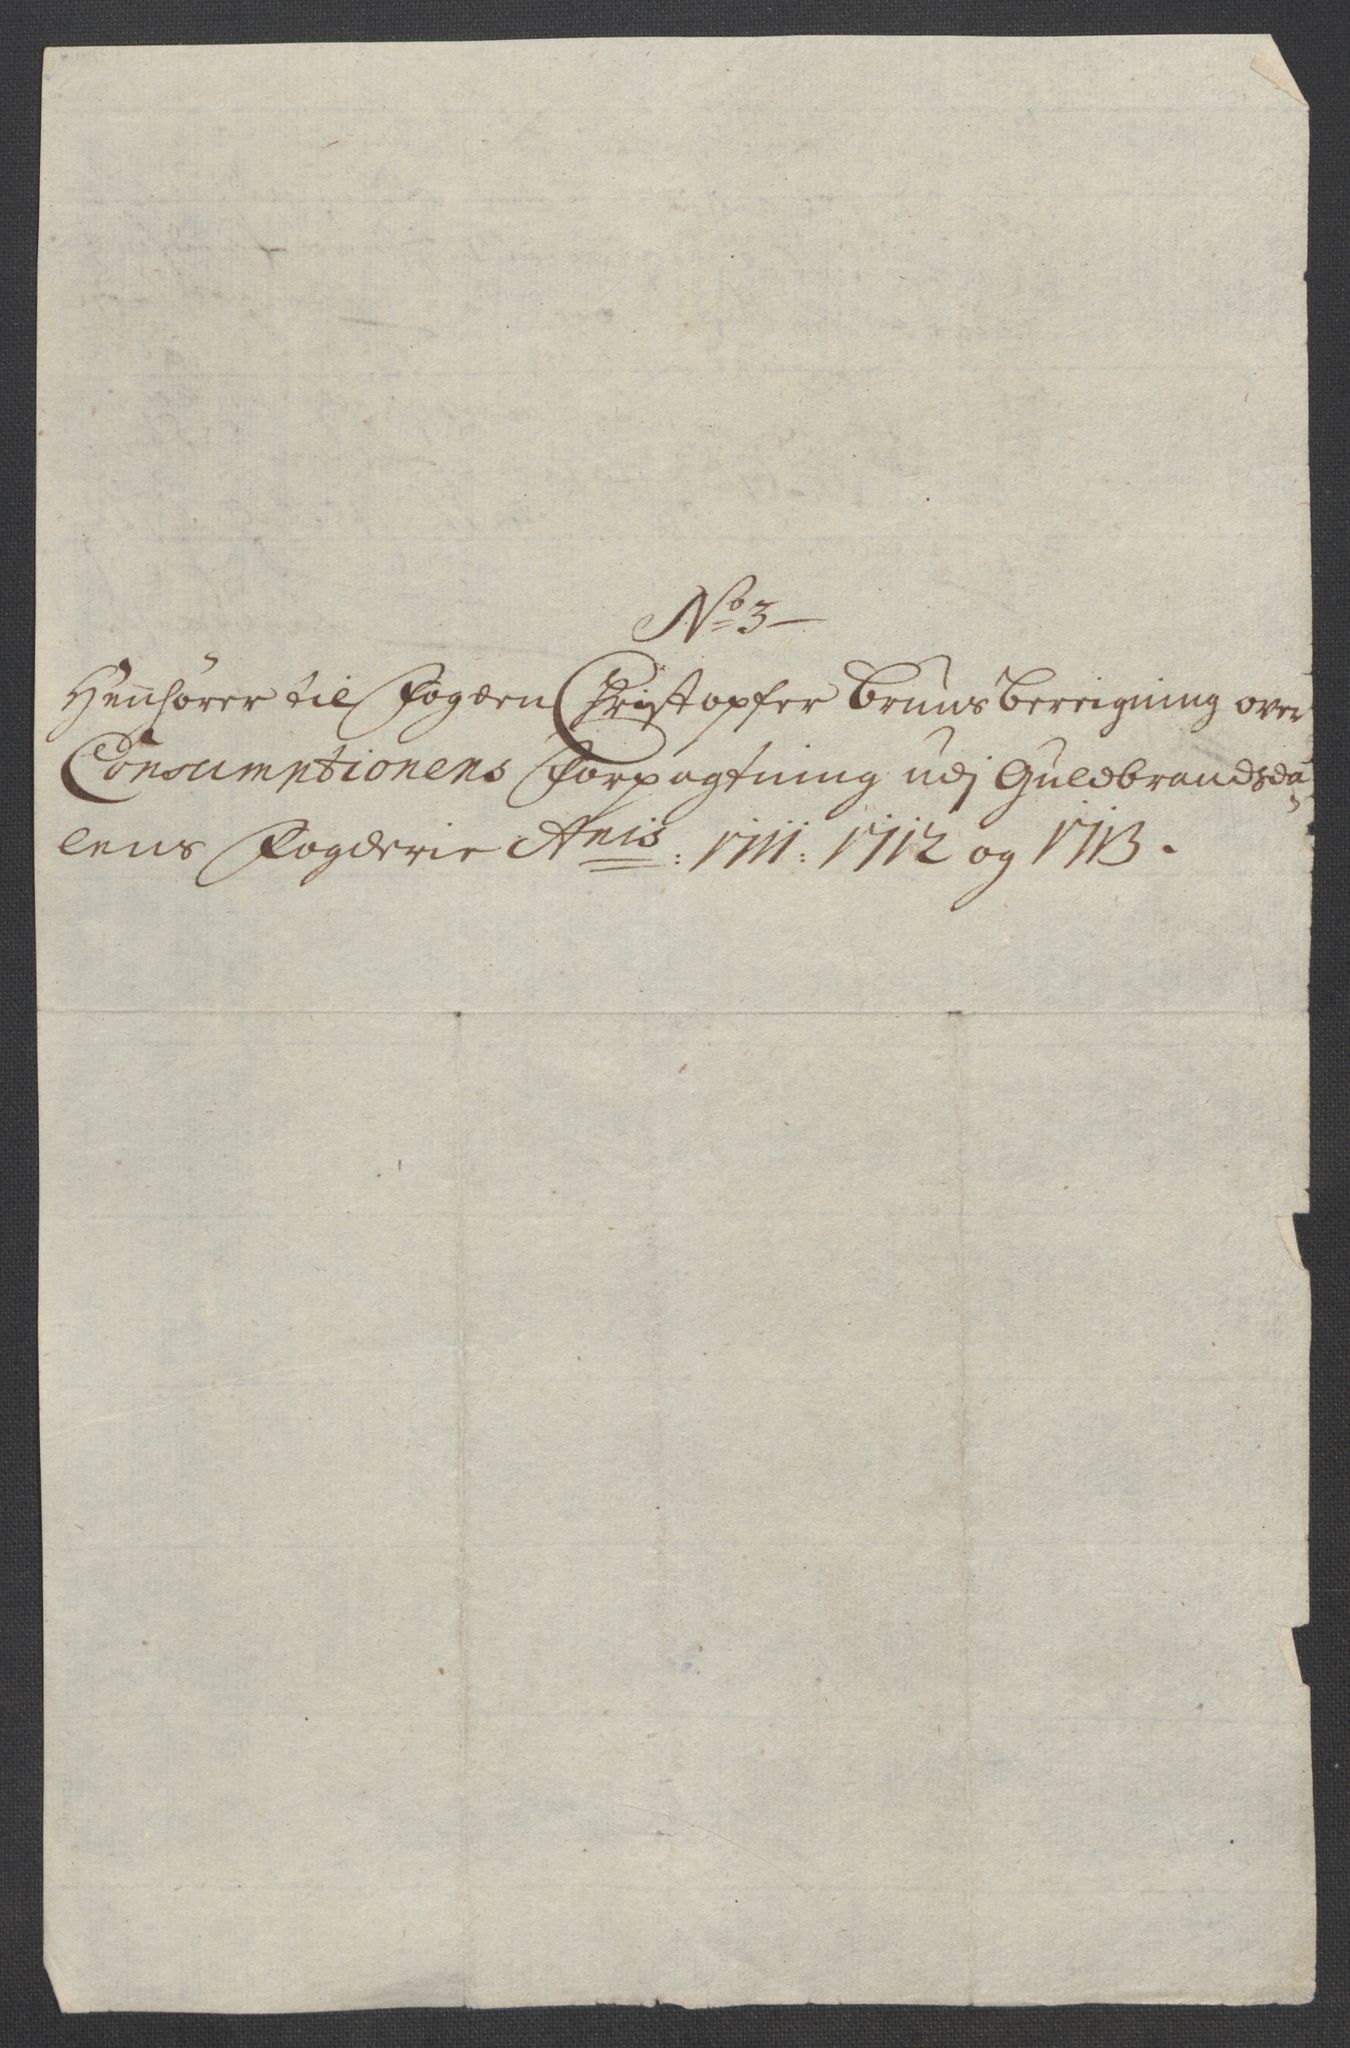 No 3
Henhører til Fogden Christopher Bruns bereigning over
Consumptionens Forpagtning udj Guldbrandsda
lens Fogderie Anis: 1711: 1712 og 1713.